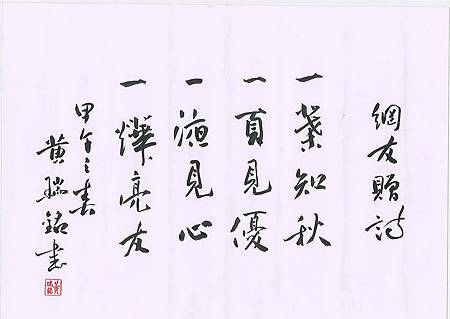 網友贈詩
一葉知秋
一頁見優
一液見心
一燁亮友
甲午之春
黃瑞銘書